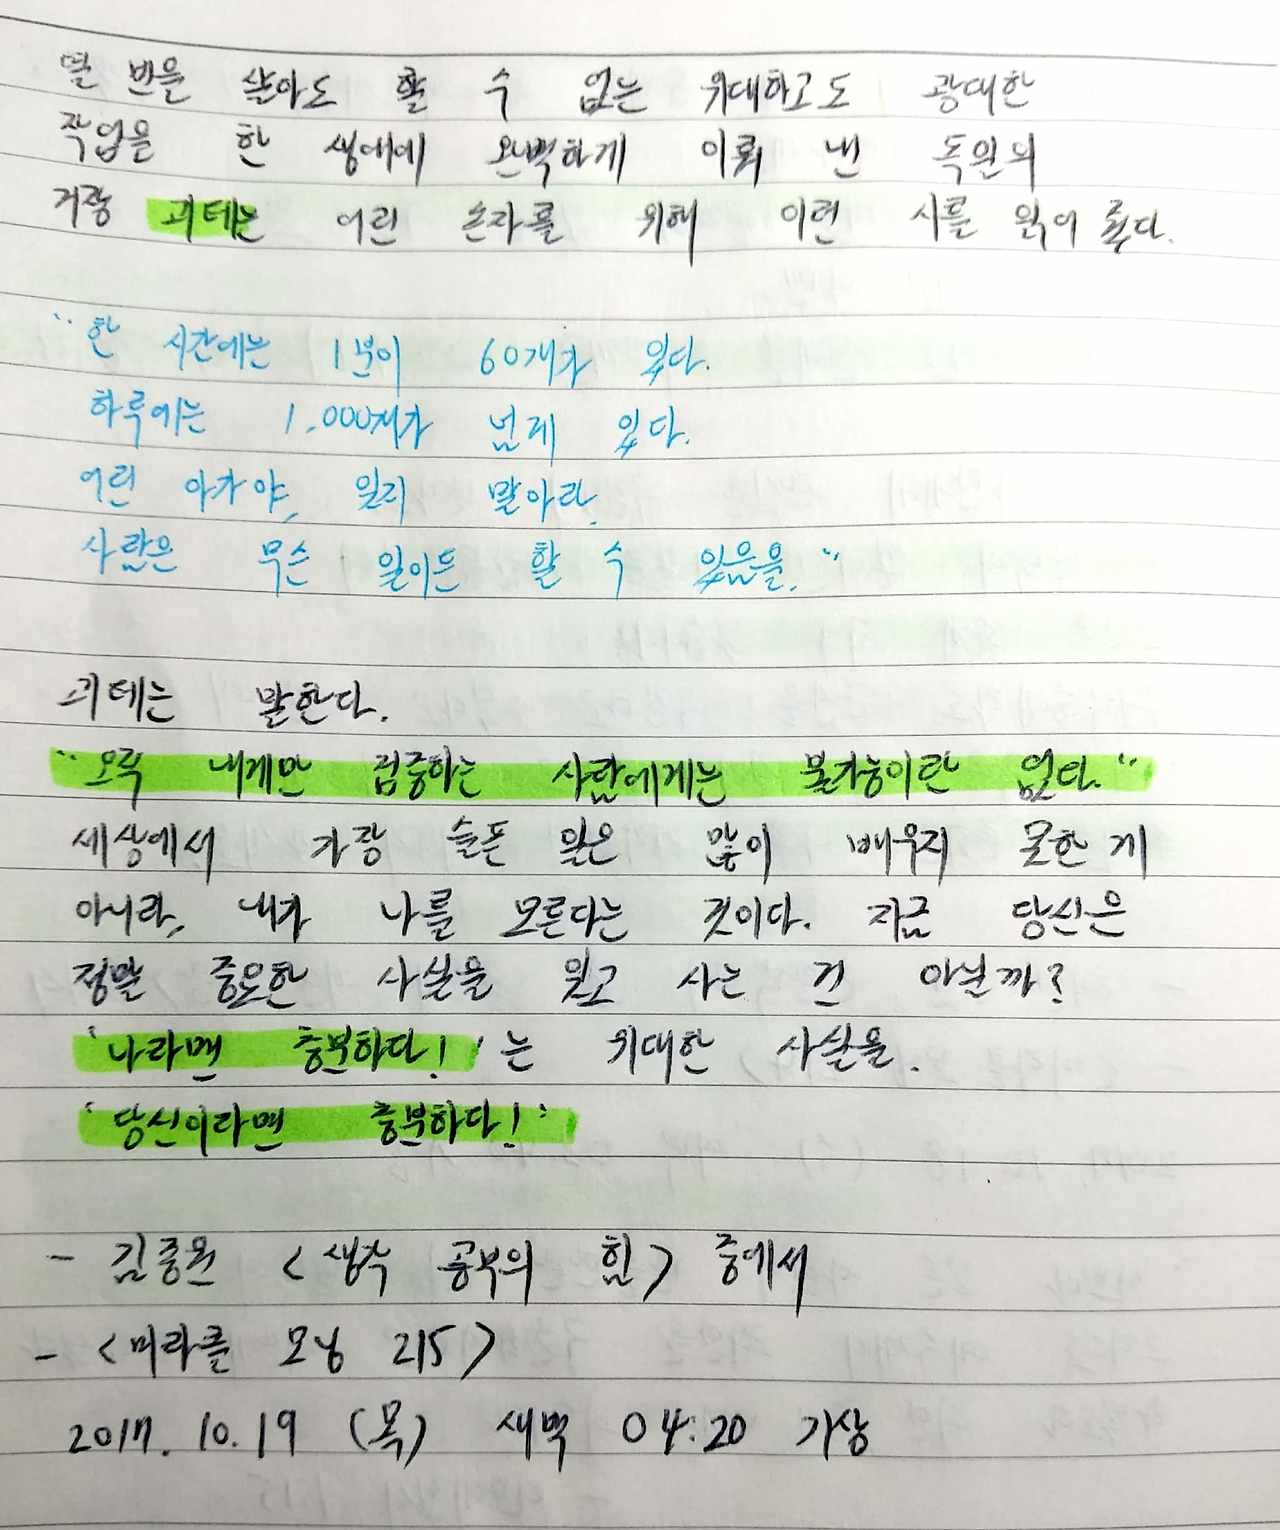 열 번을 살아도 할 수 없는 위대하고도 광대한
작업을 한 생에에 완벽하게 이뤄 낸 독일의
거장 괴테는 어린 손자를 위해 이런 시를 읽어 줬다.
"한 시간에는 1분이 60개가 있다.
하루에는 1,000개가 넘게 있다.
어린 아가야, 잊지 말아라,
사람은 무슨 일이든 할 수 있음을."
괴테는 말한다.
"오직 내게만 집중하는 사람에게는 불가능이란 없다."
세상에서 가장 슬픈 일은 많이 배우지 못한 게
아니라, 내가 나를 모른다는 것이다. 지금 당신은
정말 중요한 사실을 잊고 사는 건 아닐까?
'나라면 충분하다!'는 위대한 사실을.
'당신이라면 충분하다!'
- 김종원 <생각 공부의 힘> 중에서
- <미라클 모닝 215>
2017. 10. 19 (목) 새벽 04:20 기상